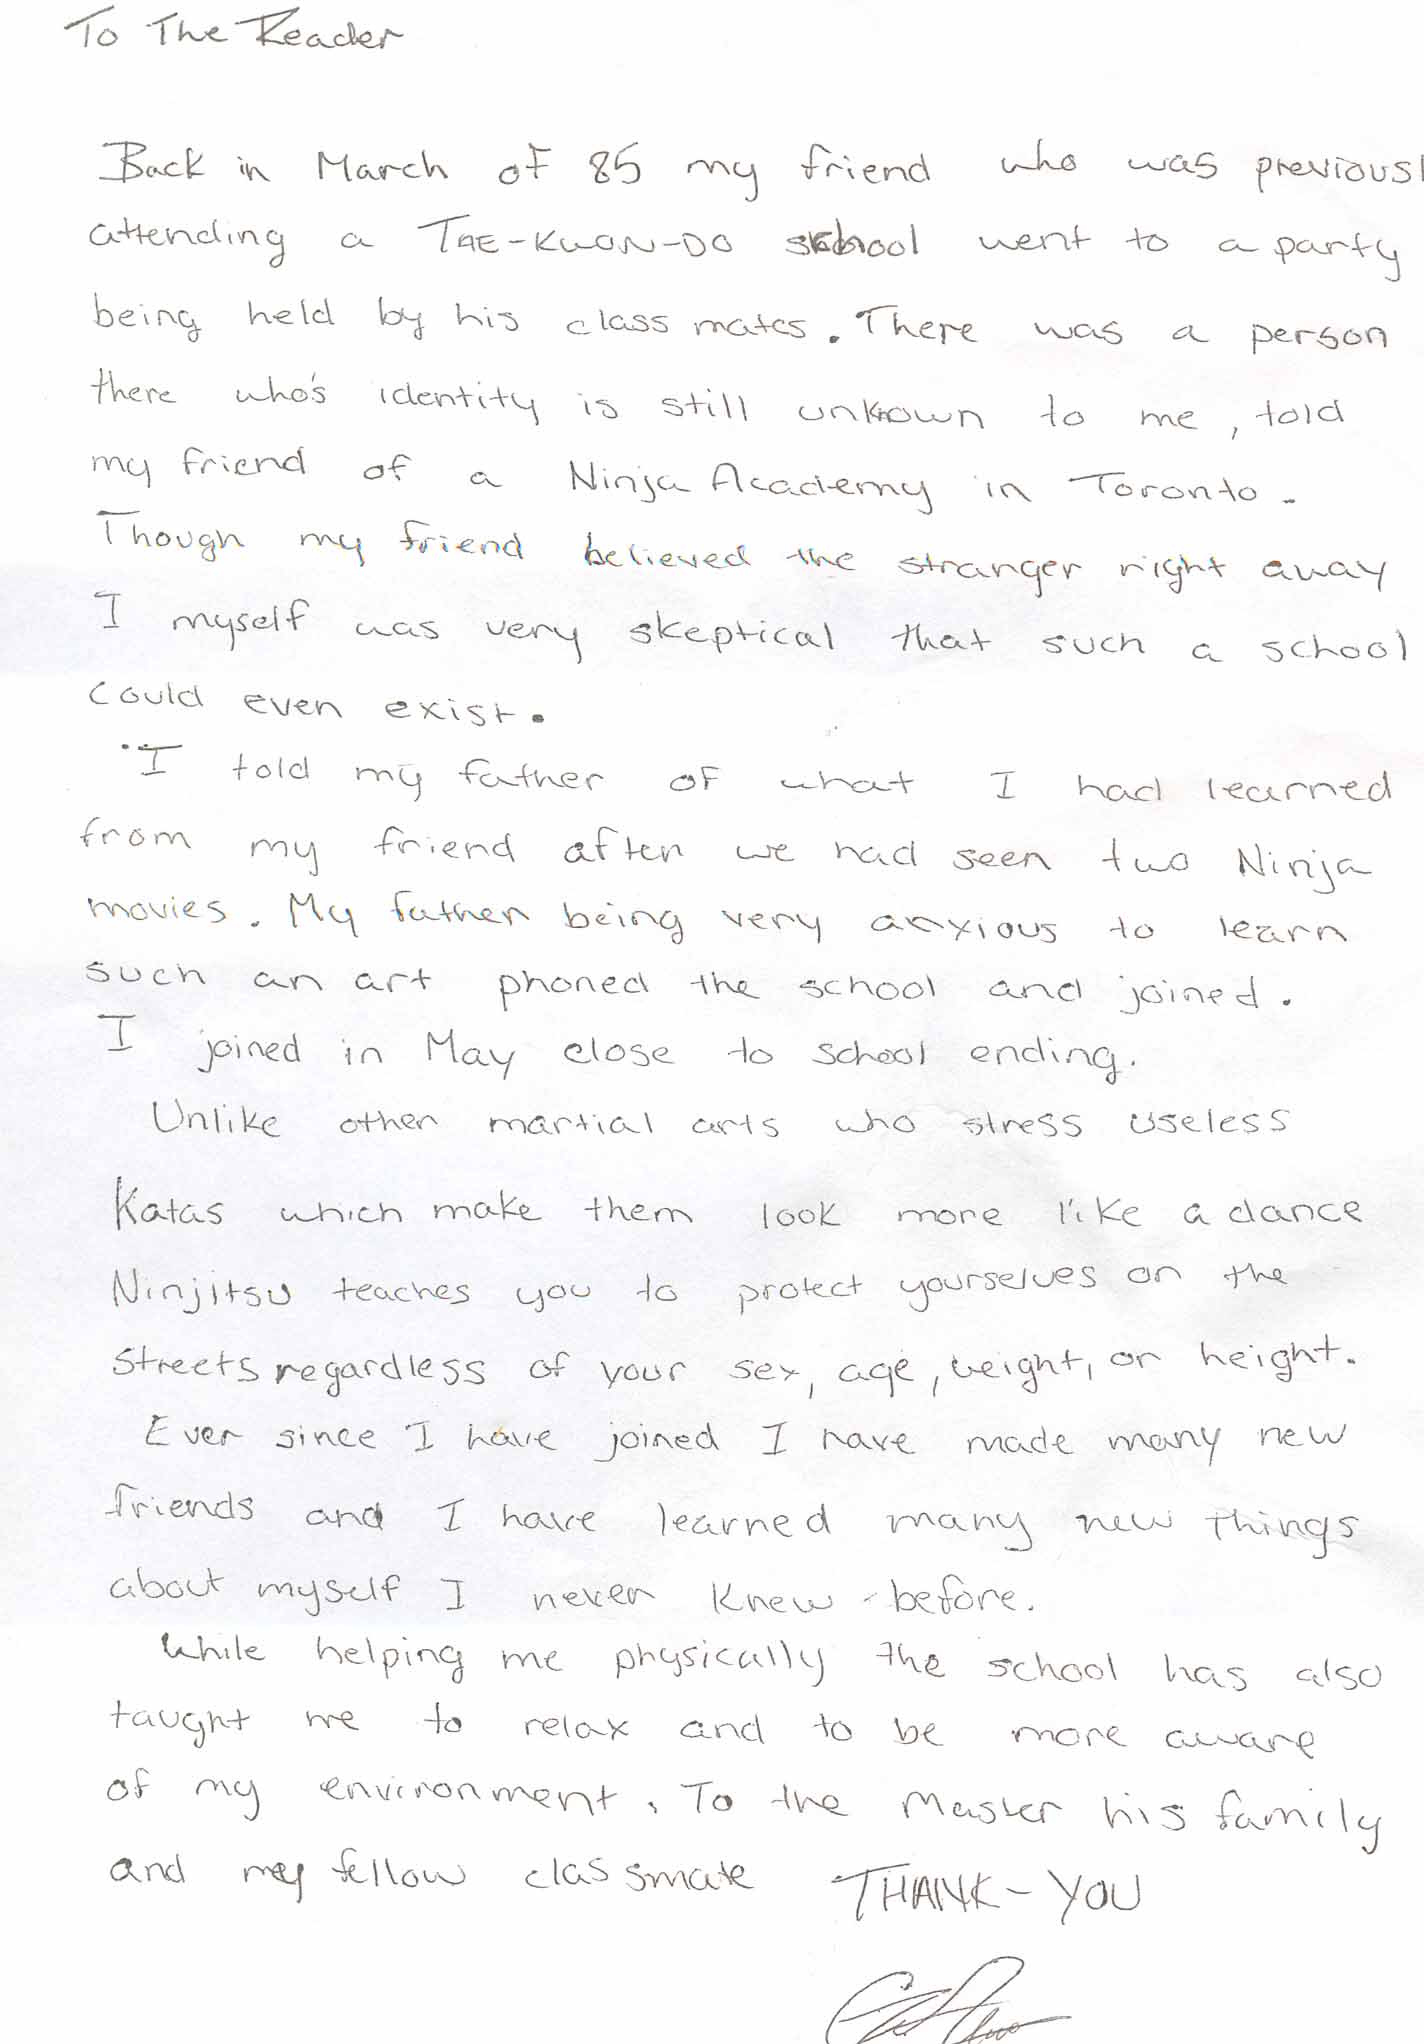 To The Reader
Back in March of 85 my friend who was previousl
attending a TAE-KWON-DO school went to a party
being held by his class mates. There was a person
there who's identity is still unknown to me, told
my friend of a Ninja Academy in Toronto.
Though my friend believed the stranger right away
I myself was very skeptical that such a school
could even exist.
I told my father of what I had learned
from my friend after we had seen two Ninja
movies. My father being very anxious to learn
such an art phoned the school and joined.
I joined in May close to school ending.
Unlike other martial arts who stress useless
Katas which make them look more like a dance
Ninjitsu teaches you to protect yourselves on the
streets regardless of your sex, age, weight, or height.
Ever since I have joined I have made many new
friends and I have learned many new things
about myself I never knew before.
While helping me physically the school has also
taught me to relax and to be more aware
of my environment. To the Master his family
and my fellow classmate THANK-YOU